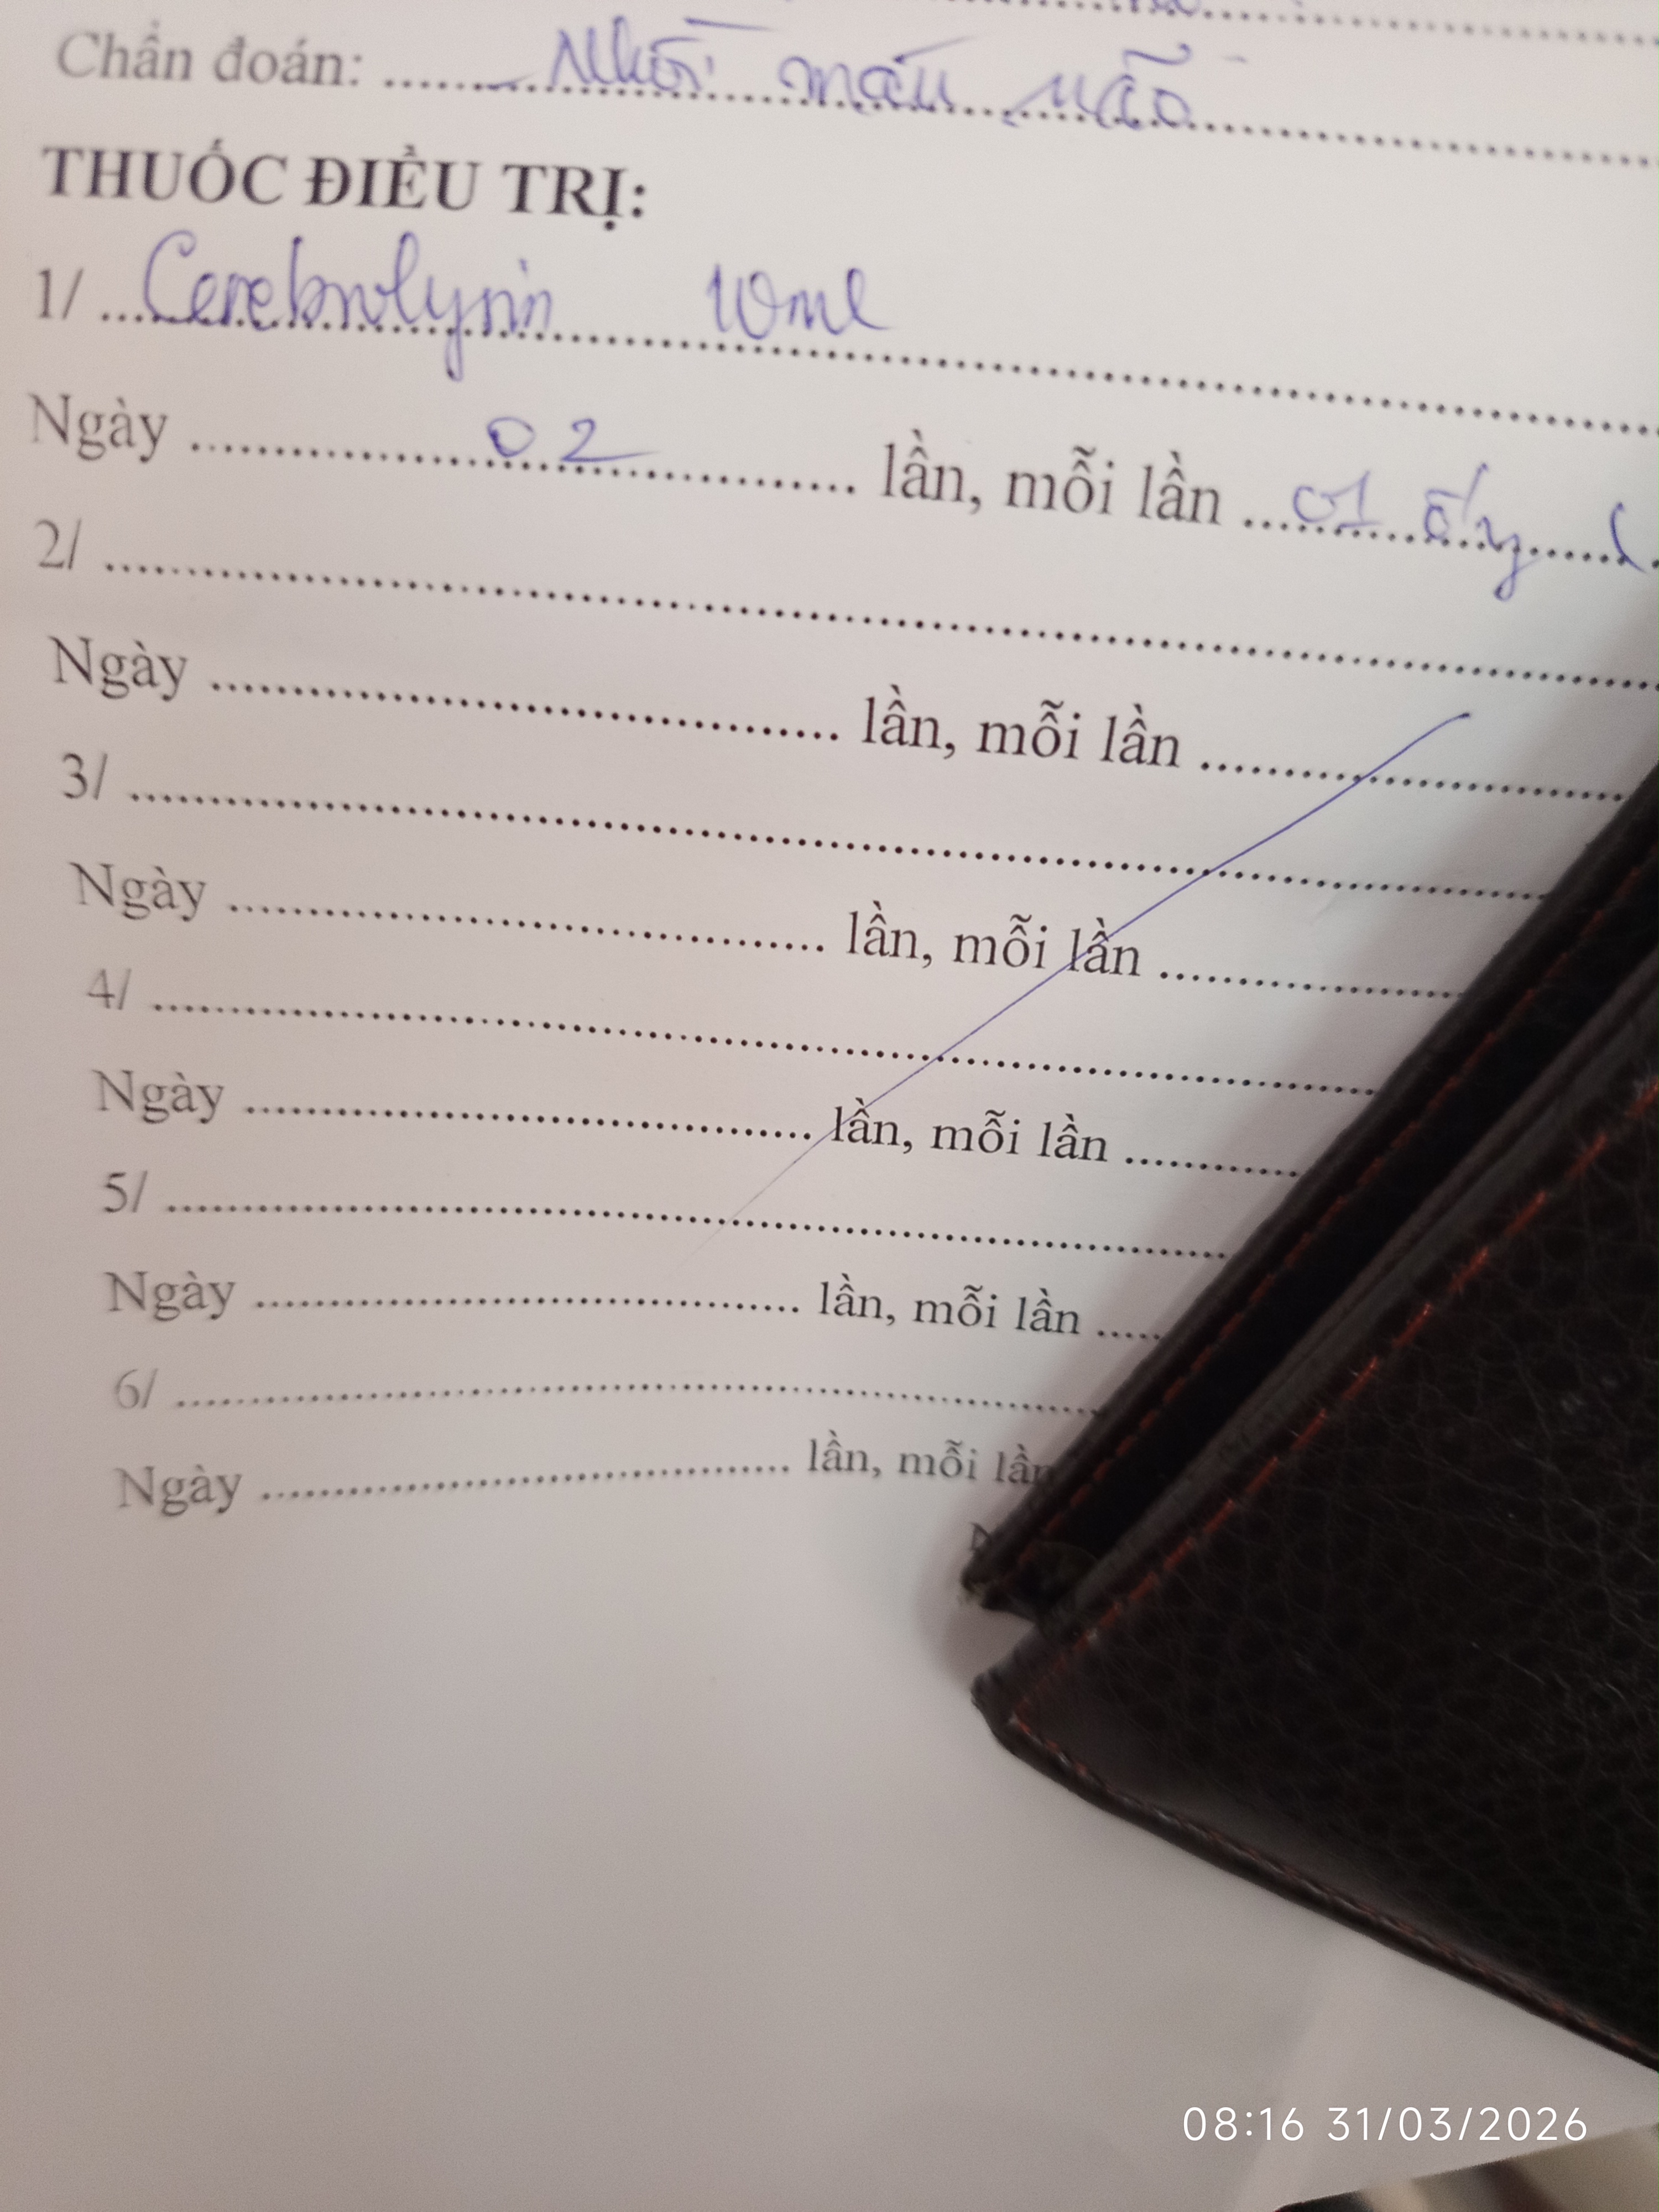 Chẩn đoán: ........ Nhồi máu não ........
THUỐC ĐIỀU TRỊ:
1/ ........ Cerebrolysin 10ml ........
Ngày ........ 02 ........ lần, mỗi lần ........ 01 ống ........ (
2/ ........
Ngày ........ lần, mỗi lần ........
3/ ........
Ngày ........ lần, mỗi lần ........
4/ ........
Ngày ........ lần, mỗi lần ........
5/ ........
Ngày ........ lần, mỗi lần .....
6/ ........
Ngày ........ lần, mỗi lần
08:16 31/03/2026